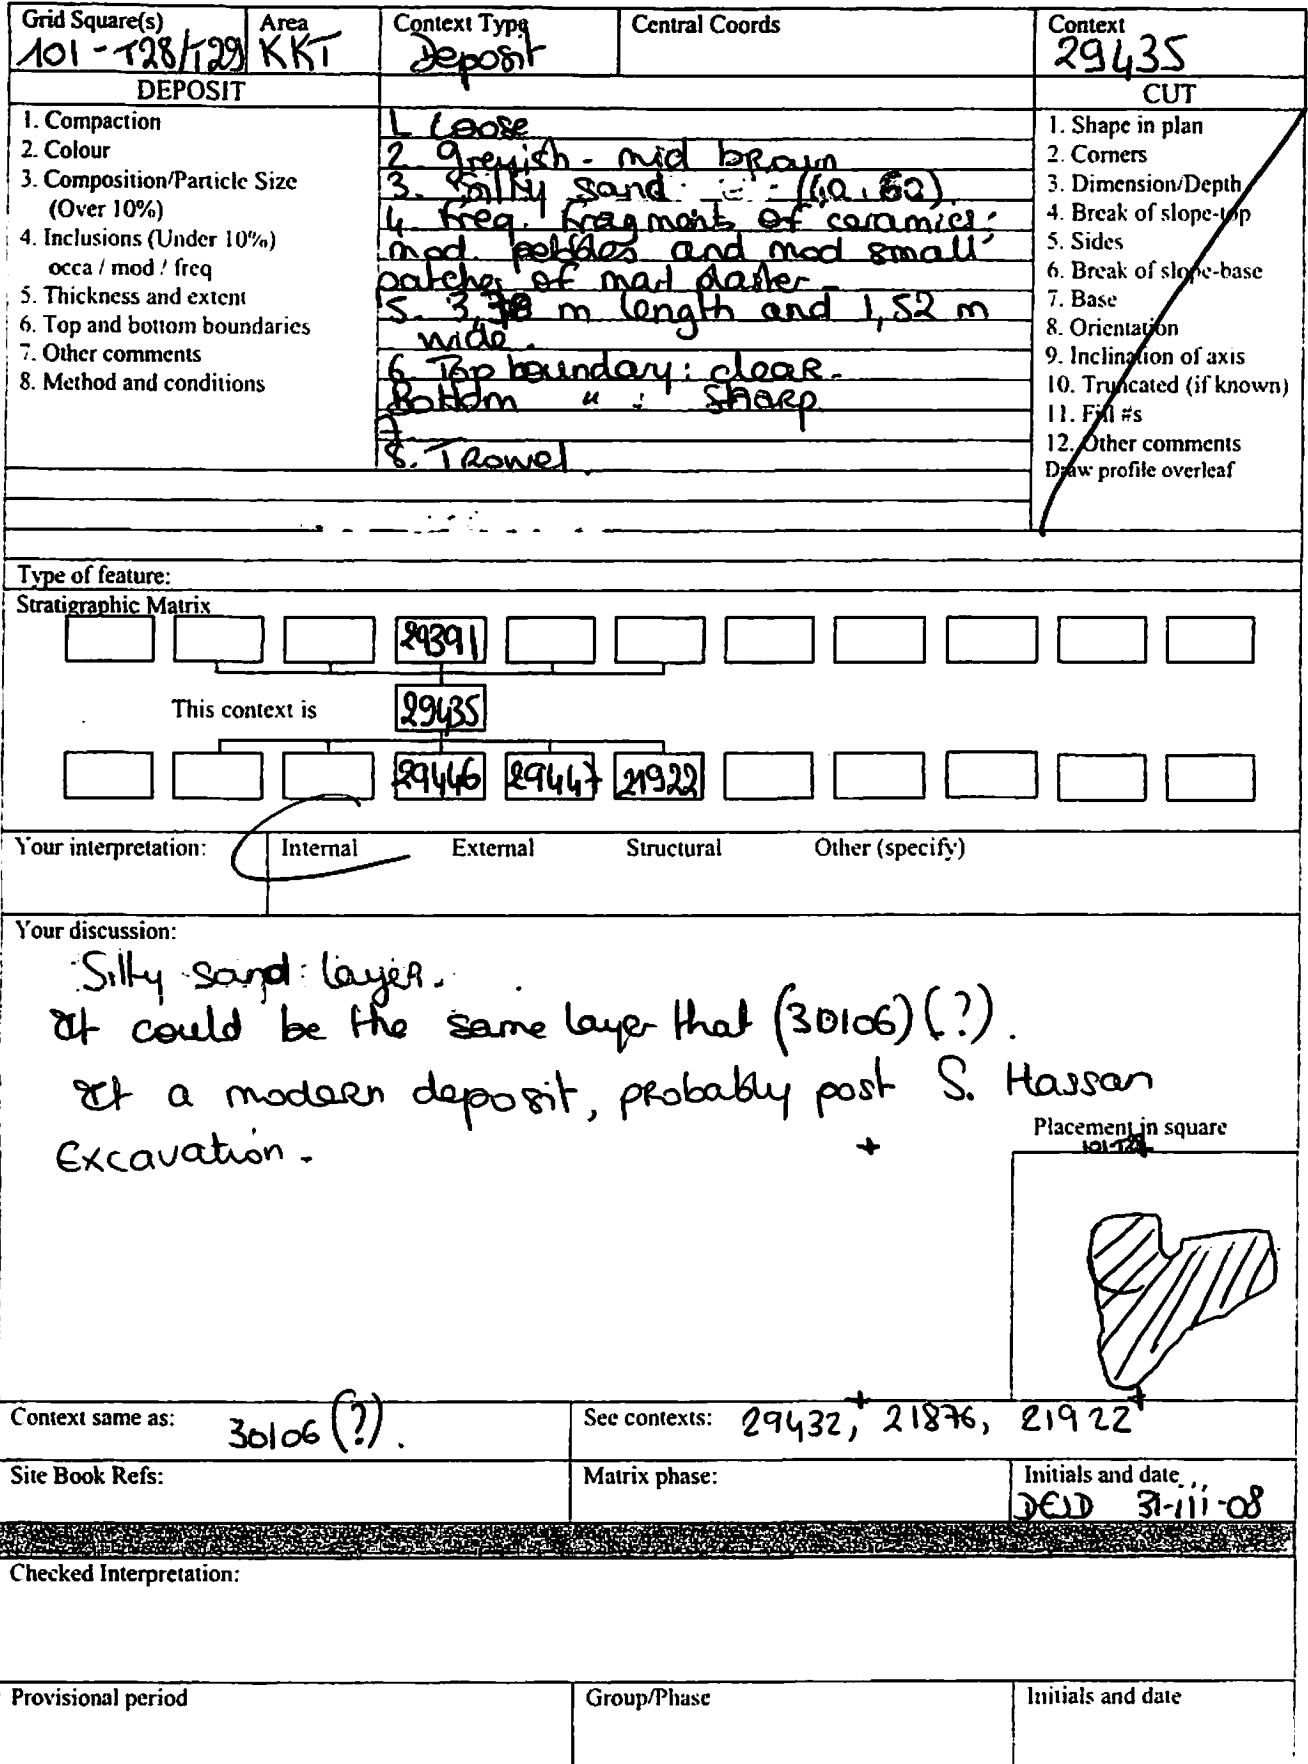 Grid Square(s) Area Context Type Central Coords Context
101-T28/T29 KKT Deposit 29435
DEPOSIT CUT
1. Compaction
2. Colour
3. Composition/Particle Size
(Over 10%)
4. Inclusions (Under 10%)
occa / mod / freq
5. Thickness and extent
6. Top and bottom boundaries
7. Other comments
8. Method and conditions
1. Loose
2. Greyish - mid brown
3. Silty sand (40.60)
4. Freq. fragments of ceramics;
mod. pebbles and mod small
patches of marl plaster.
5. 3,38 m length and 1,52 m
wide.
6. Top boundary: clear.
Bottom " : Sharp
7.
8. Trowel.
1. Shape in plan
2. Corners
3. Dimension/Depth
4. Break of slope-top
5. Sides
6. Break of slope-base
7. Base
8. Orientation
9. Inclination of axis
10. Truncated (if known)
11. Fill #s
12. Other comments
Draw profile overleaf
Type of feature:
Stratigraphic Matrix
29391
This context is 29435
29446 29447 21922
Your interpretation: Internal External Structural Other (specify)
Your discussion:
Silty sand layer.
It could be the same layer that (30106) (?).
It a modern deposit, probably post S. Hassan
Excavation.
Placement in square
101-T28
Context same as: 30106 (?). See contexts: 29432, 21876, 21922
Site Book Refs: Matrix phase: Initials and date
DEJD 31-iii-08
Checked Interpretation:
Provisional period Group/Phase Initials and date